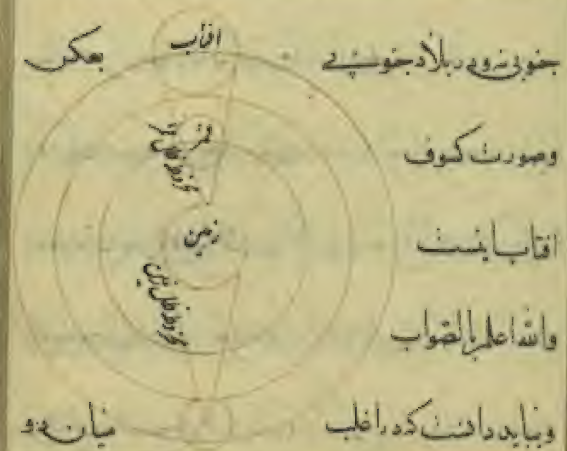 جنوبی شود و در بلاد جنوبی بعکس
وصورت کسوف
افتاب اینست
والله اعلم بالصواب
و بباید دانست که در اغلب میان دو
افتاب
قمر
مخروط ظل قمر
زمین
مخروط ظل زمین